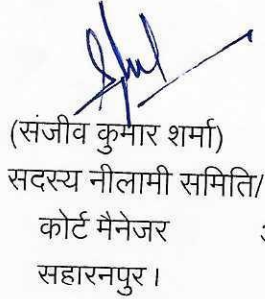 (संजीव कुमार शर्मा)
सदस्य नीलामी समिति/
कोर्ट मैनेजर
सहारनपुर।